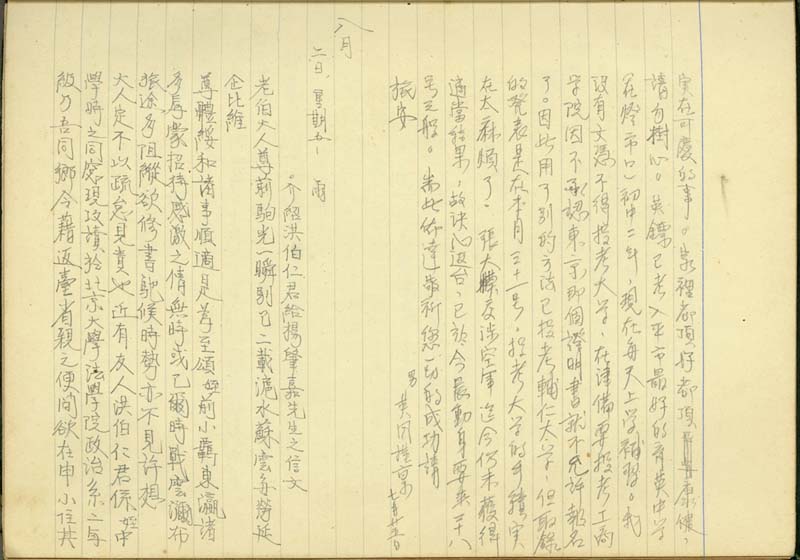 實在可慶的事。家裡都頂好都頂康健,
請勿樹心。英鏢已考入平市最好的育英中學
(在燈市口)初中二年,現在每天上學補習。我
沒有文憑不得投考大学,在準備要投考工商
学院因不承認東京那個證明書就不允許報名
了。因此用了別的方法已投考輔仁大学,但取錄
的發表是在本月三十一号。投考大学的手續實
在太麻煩了。張大 交涉空軍迄今仍未獲得
適當結果,故決心返台,已於今晨動身要乘二十八
号之船。耑此佈達敬祈您一切的成功請
旅安
男
七月廿五日
八月
二日,星期五,雨
。介紹洪伯仁君給楊肇嘉先生之信文
老伯大人尊前駒光一瞬別已二載滬水蘇雲每勞延
企比維
尊體綏和諸事順適是

至頌 前小羈東瀛諸
多辱蒙招待感激之情無時或已爾時戰雲瀰布
旅途多阻雖欲修書馳候時勢亦不見許想
大人定不以疏怠見責也近有友人洪伯仁君係 中
學時之同窓現攻讀於北京大學法學院政治系之與
級乃吾同鄉今藉返臺省親之便間欲在申小住共